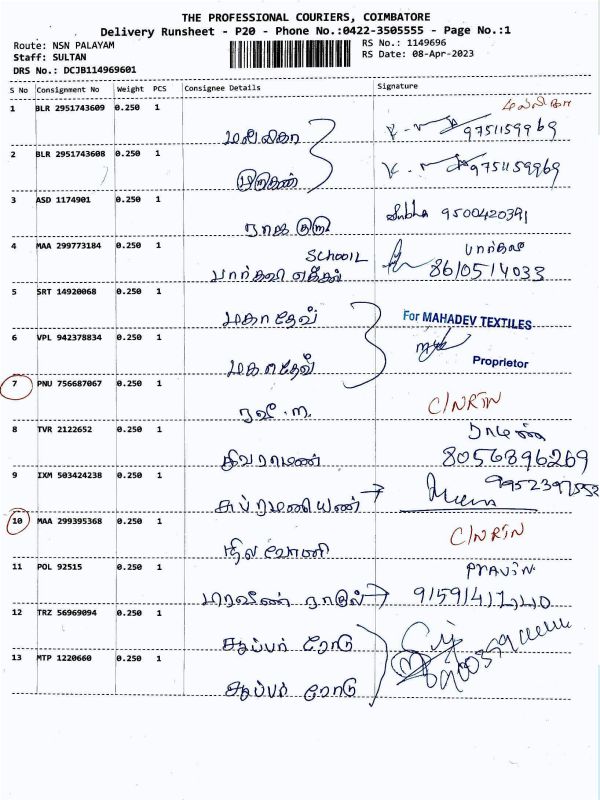 THE PROFESSIONAL COURIERS, COIMBATORE
Delivery Runsheet - P20 - Phone No.:0422-3505555 - Page No.:1
Route: NSN PALAYAM
Staff: SULTAN
DRS No.: DCJB114969601
RS No.: 1149696
RS Date: 08-Apr-2023
S No Consignment No Weight PCS Consignee Details Signature
1 BLR 2951743609 0.250 1
மல்லிகா 9751159969
2 BLR 2951743608 0.250 1
முருகன் 9751159969
3 ASD 1174901 0.250 1
ராஜ குரு Subha 9500420391
4 MAA 299773184 0.250 1
SCHOOL
8610514033
5 SRT 14920068 0.250 1
மகாதேவ் For MAHADEV TEXTILES
6 VPL 942378834 0.250 1
மகாதேவ் Proprietor
7 PNU 756687067 0.250 1
C/NRTN
8 TVR 2122652 0.250 1
சிவராமன் 8056896269
9 IXM 503424238 0.250 1
சுப்ரமணியன் → 9952397552
10 MAA 299395368 0.250 1
C/NRTN
11 POL 92515 0.250 1
Pravin
12 TRZ 56969094 0.250 1
13 MTP 1220660 0.250 1